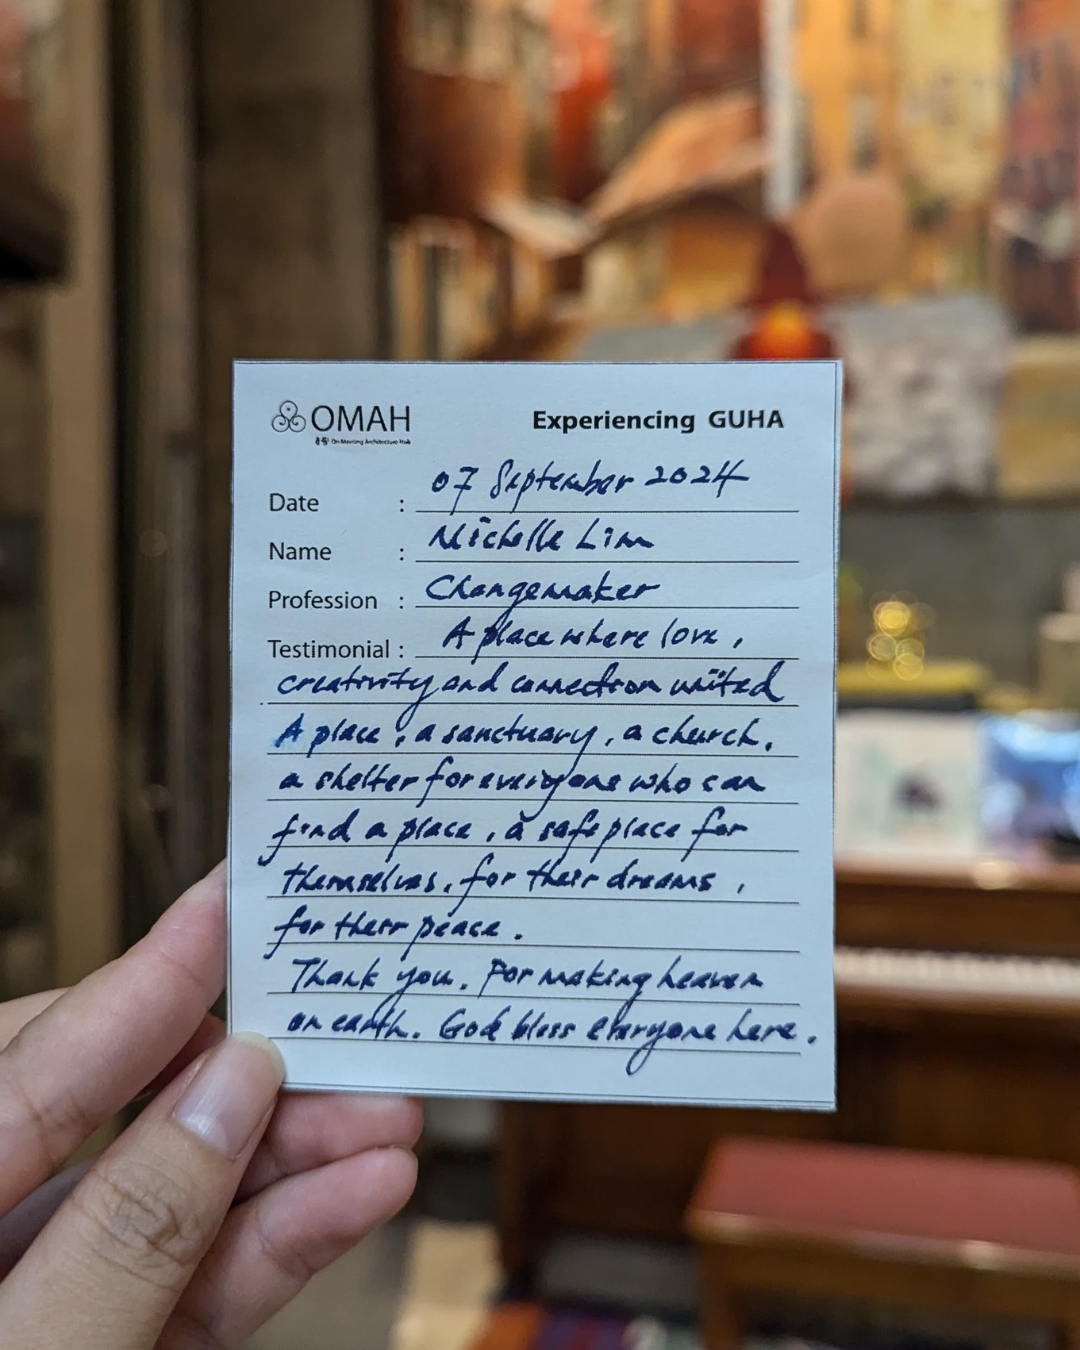 OMAH
Experiencing GUHA
On-Moving Architecture Hub
Date : 07 September 2024
Name : Michelle Lim
Profession : Changemaker
Testimonial : A place where love,
creativity and connection united
A place, a sanctuary, a church,
a shelter for everyone who can
find a place, a safe place for
themselves, for their dreams,
for their peace.
Thank you. For making heaven
on earth. God bless everyone here.